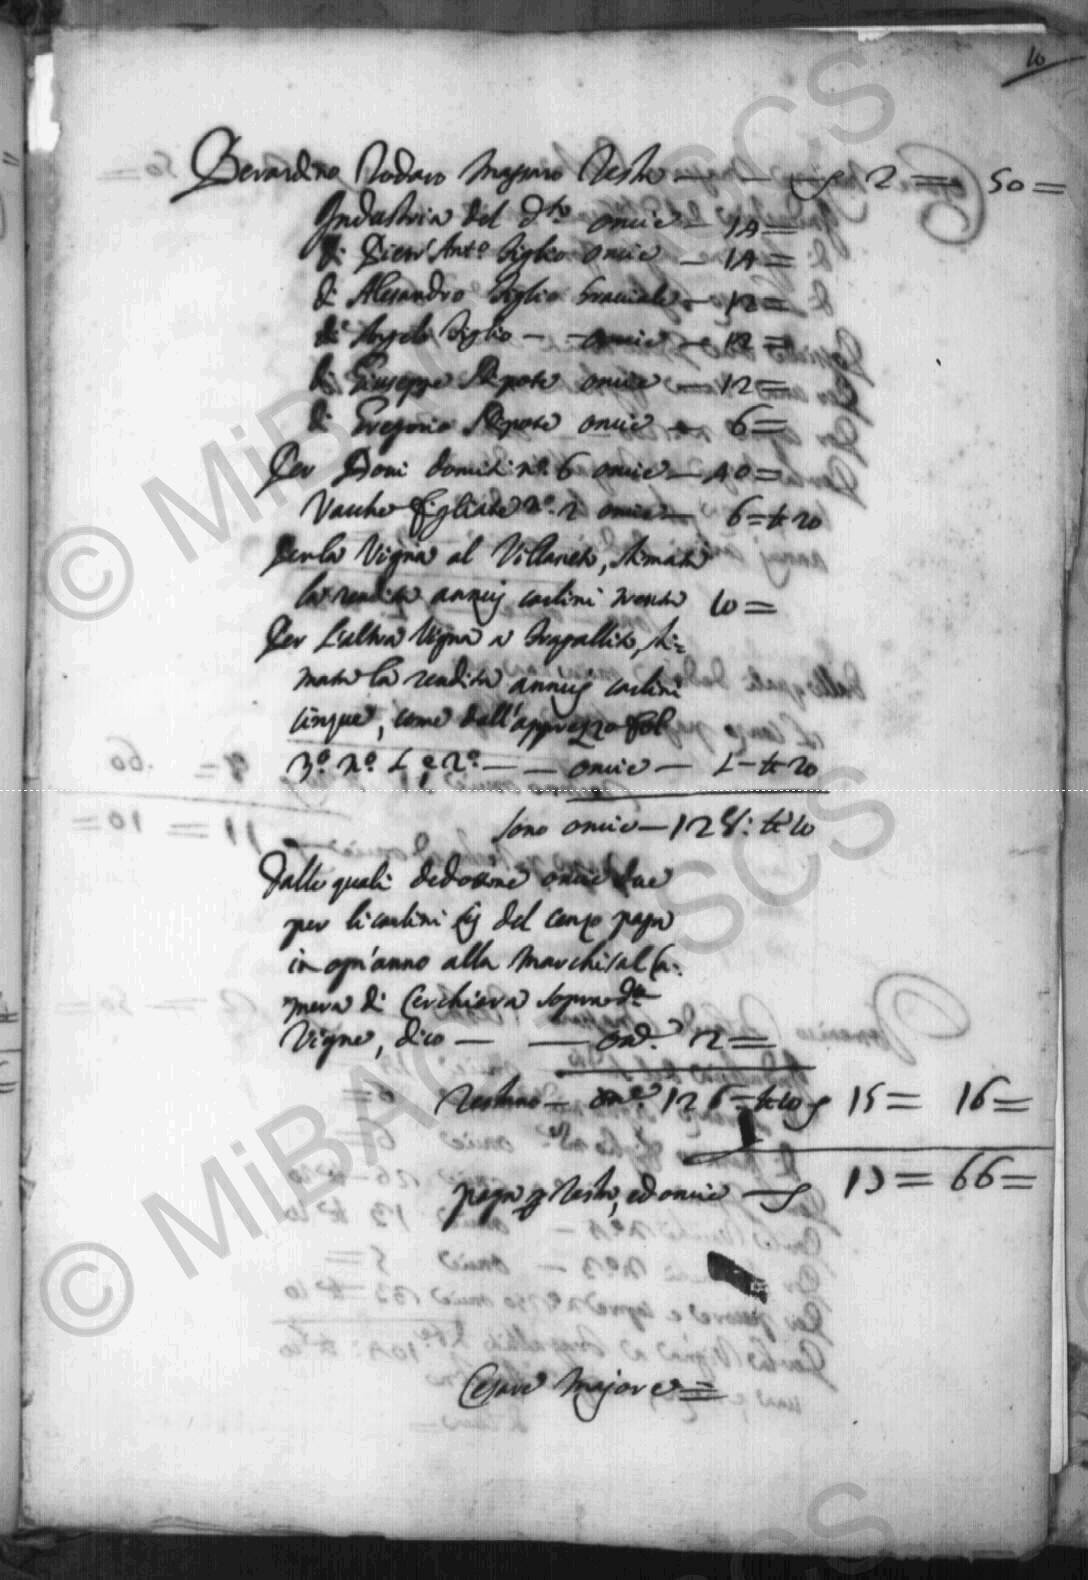 10
Berardino Rodaro Massaro Testa — — 2 = 50 =
Industria del d.to oncie — 14 =
di Pietr'Ant.o figlio oncie — 14 =
di Alesandro figlio bracciale — 12 =
di Angelo figlio — oncie — 12 =
di Giuseppe Nipote oncie — 12 =
di Gregorio Nipote oncie — 6 =
Per Bovi domiti n.o 6 oncie — 40 =
Vacche figliate n.o 2 oncie — 6 = t 20
Per la Vigna al Villaneto, stimata
la rendita annui carlini trenta 10 =
Per l'altra Vigna a sti=
mata la rendita annui carlini
cinque, come dall'apprezzo fol
3.o n.o 1 e 2.o — — oncie — 1 — t 20
Sono oncie — 128: t 10
Dalle quali dedottone oncie due
per li carlini sei del cenzo paga
in ogn'anno alla Marchisal Ca:
mera di Cerchiara sopra d.te
Vigne, dico — — on.e 2 =
Restano — on.e 126 = t 10 15 = 16 =
paga per testa, ed oncie — 13 = 66 =
Cesare Majore =
© MiBAC - ASCS
© MiBAC - ASCS